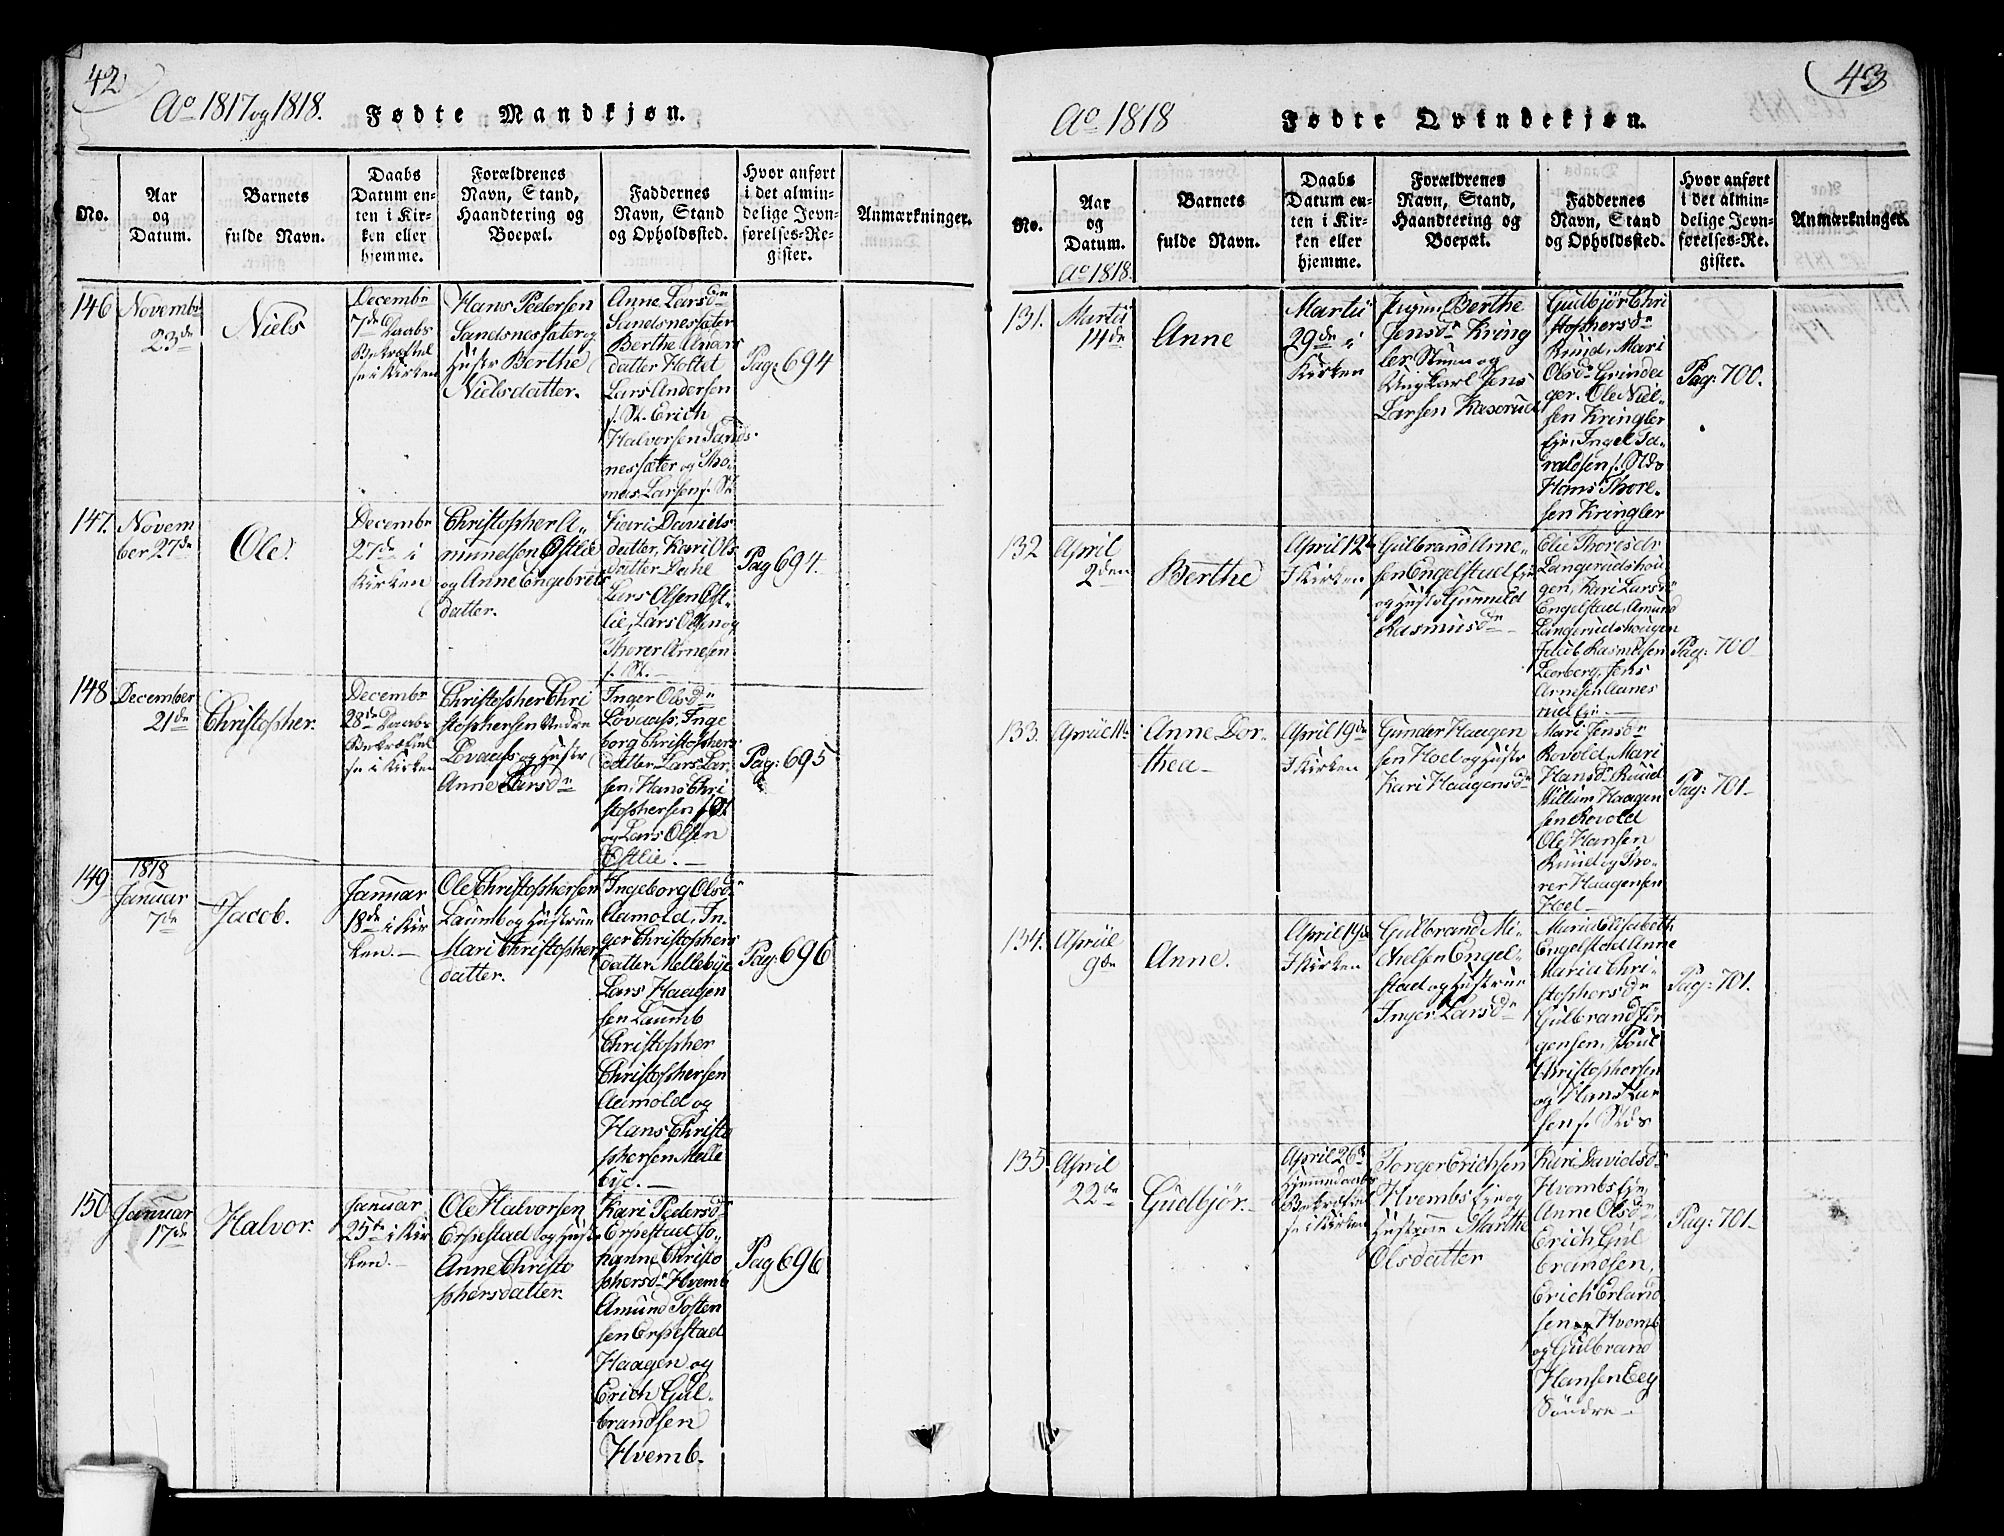 42
Ao 1817 og 1818. Fødte Mandkjøn.
No.
Aar
og
Datum.
Barnets
fulde Navn.
Daabs
Datum en-
ten i Kir-
ken eller
hjemme.
Forældrenes
Navn, Stand,
Haandtering og
Boepæl.
Faddernes
Navn, Stand
og Opholdssted.
Hvor anført
i det almin-
delige Jevn-
førelses-Re-
gister.
Anmærkninger.
146
Novembr
23de
Niels
Decembr
7de Daabs
Bekræftel
se i Kirken
Hans Pedersen
Sandsnessæter og
Hustr Berthe
Nielsdatter.
Anne Larsdr
Sandsnessæter
Berthe Anders
datter Holtet
Lars Andersen
f. St. Erich
Halvorsen Sands-
nessæter og Tho-
mas Larsen f. St.
Pag: 694
147.
Novem
ber 27de
Ole.
Decembr
27de i
Kirken
Christopher A-
mundsen Østlie
og Anne Engebrets
datter.
Siari Daniels
datter, Kari Ols-
datter Dahl
Lars Olsen Øst-
lie, Lars Olsen og
Thorer Arnesen
f. St. -
Pag 694
148
December
21de
Christopher.
Decembr
28de Daabs
Bekræftel
se i Kirken
Christopher Chri
stophersen Nedre
Lovaas og Hustr
Anne Larsdr
Inger Olsdr
Løvaas, Inge
borg Christophers
datter Lars Lar-
sen, Hans Chri
stophersen f. St
og Lars Olsen
Østlie. -
Pag: 695
149
1818
Januar
7de
Jacob.
Januar
18de i Kir
ken. -
Ole Christophersen
Laumb og Hustrue
Mari Christophers
datter.
Ingeborg Olsdr
Aamold, In-
ger Christophers
datter Mellebye
Lars Haagen
sen Laumb
Christopher
Christophersen
Aamold og
Hans Christo
phersen Melle
bye. -
Pag: 696
150
Januar
17de
Halvor.
Januar
25de i Kir
ken. -
Ole Halvorsen
Erpestad og Hustr
Anne Christo
phersdatter.
Kari Pedersdr
Erpestad Jo-
hanne Christo
phersdr Hvemb
Amund Tosten
sen Erpestad
Haagen og
Erich Gul-
brandsen
Hvemb.
Pag 696
43
Ao 1818 Fødte Qvindekjøn.
No.
Aar
og
Datum.
Ao 1818.
Barnets
fulde Navn.
Daabs
Datum en-
ten i Kir-
ken eller
hjemme.
Forældrenes
Navn, Stand,
Haandtering og
Boepæl.
Faddernes
Navn, Stand
og Opholdssted.
Hvor anført
i det almin-
delige Jevn-
førelses-Re-
gister.
Anmærkninger.
131.
Martii
14de
Anne
Martii
29de i
Kirken
Pigen Berthe
Jensdr Kring
ler Stuen og
Ungkarl Jens
Larsen Kaserud
Gudbjør Chri
stophersdr
Ruud, Mari
Olsdr Grinda
ger. Ole Niel-
sen Kringler
Eje, Ingel Ta-
raldsen f. Stds
Hans Thore-
sen Kringler
Pag: 700.
132
April
2den
Berthe
April 12te
I Kirken
Gulbrand Arne-
sen Engelstad Eje
og Hustr Gunnild
Rasmusdr -
Olie Thoresdr
Langerudshou-
gen, Kari Larsdr
Engelstad, Amund
Langerudshaugen
Jacob Rasmusen
Leerberg, Jens
Arnesen Aanes
rud Eje. -
Pag: 700
133.
April
Anne Dor-
thea -
April 19de
I Kirken
Gunder Haagen
sen Hoel og Hustr
Kari Haagensdr
Mari Jensdr
Rovold, Mari
Hansdr Ruud
Willum Haagen
sen Rovold
Ole Hansen
Ruud og Tho-
rer Haagensen
Hoel -
Pag: 701 -
134.
April
9de
Anne.
April 19de
I Kirken
Gulbrand Mi-
chelsen Engel-
stad og Hustrue
Inger Larsdr
Maria Elisabeth
Engelstad Anne
Maria Chri-
stophersdr
Gulbrand Jør
gensen, Poul
Christophersen
og Hans Lar
sen f. Stds
Pag: 701.
135
April
22de
Gudbjør.
April 26de
Hjemmedaabs
Bekræftel
se i Kirken
Torger Erichsen
Hvembs Eje og
Hustrue Marthe
Olsdatter
Kari Davidsdr
Hvembs Eje
Anne Olsdr,
Erich Gul
brandsen,
Erich Erland
sen Hvemb
og Gulbrand
Hansen Eeg
Søndre -
Pag: 701 -